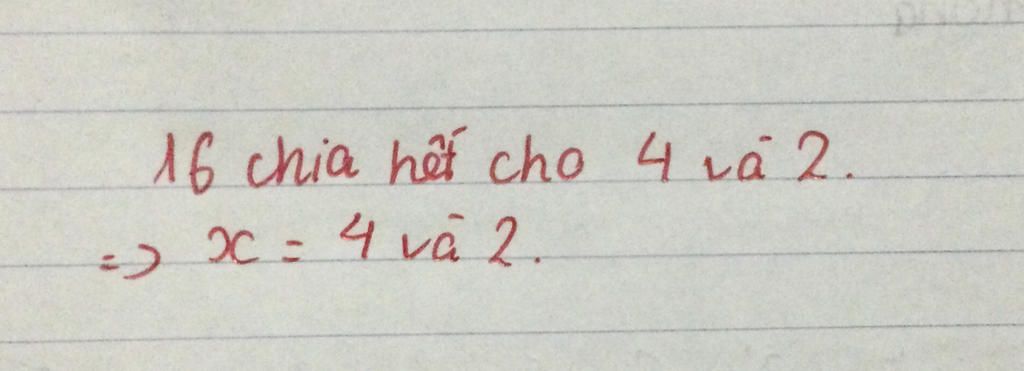 16 chia hết cho 4 và 2.
=> x = 4 và 2.